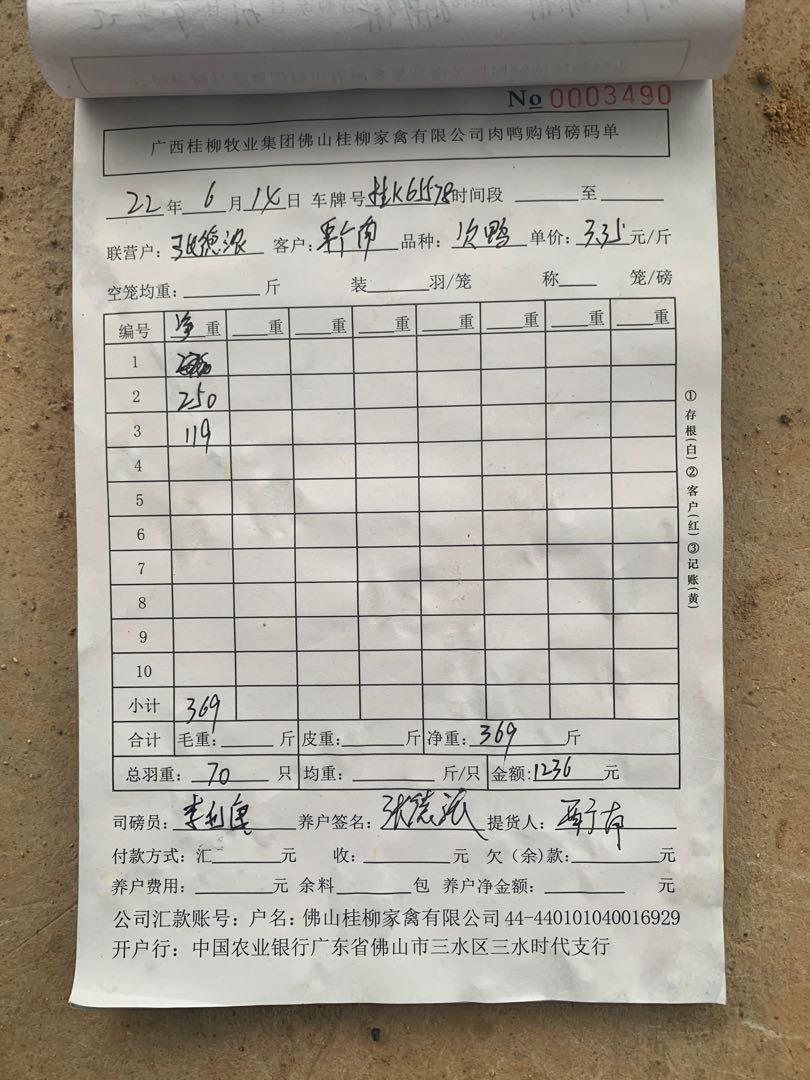 No 0003490
广西桂柳牧业集团佛山桂柳家禽有限公司肉鸭购销磅码单
22年 6月 14日 车牌号 桂K61578 时间段 至
联营户: 张德浓 客户: 南 品种: 次鸭 单价: 3.35 元/斤
空笼均重: 斤 装 羽/笼 称 笼/磅
编号 净重 重 重 重 重 重 重 重
1
2 250
3 119
4
5
6
7
8
9
10
小计 369
合计 毛重: 斤 皮重: 斤 净重: 369 斤
总羽重: 70 只 均重: 斤/只 金额: 1236 元
司磅员: 李利 养户签名: 张德浓 提货人: 南
付款方式: 汇 元 收: 元 欠(余)款: 元
养户费用: 元 余料 包 养户净金额: 元
公司汇款账号: 户名: 佛山桂柳家禽有限公司 44-440101040016929
开户行: 中国农业银行广东省佛山市三水区三水时代支行
①存根(白)②客户(红)③记账(黄)